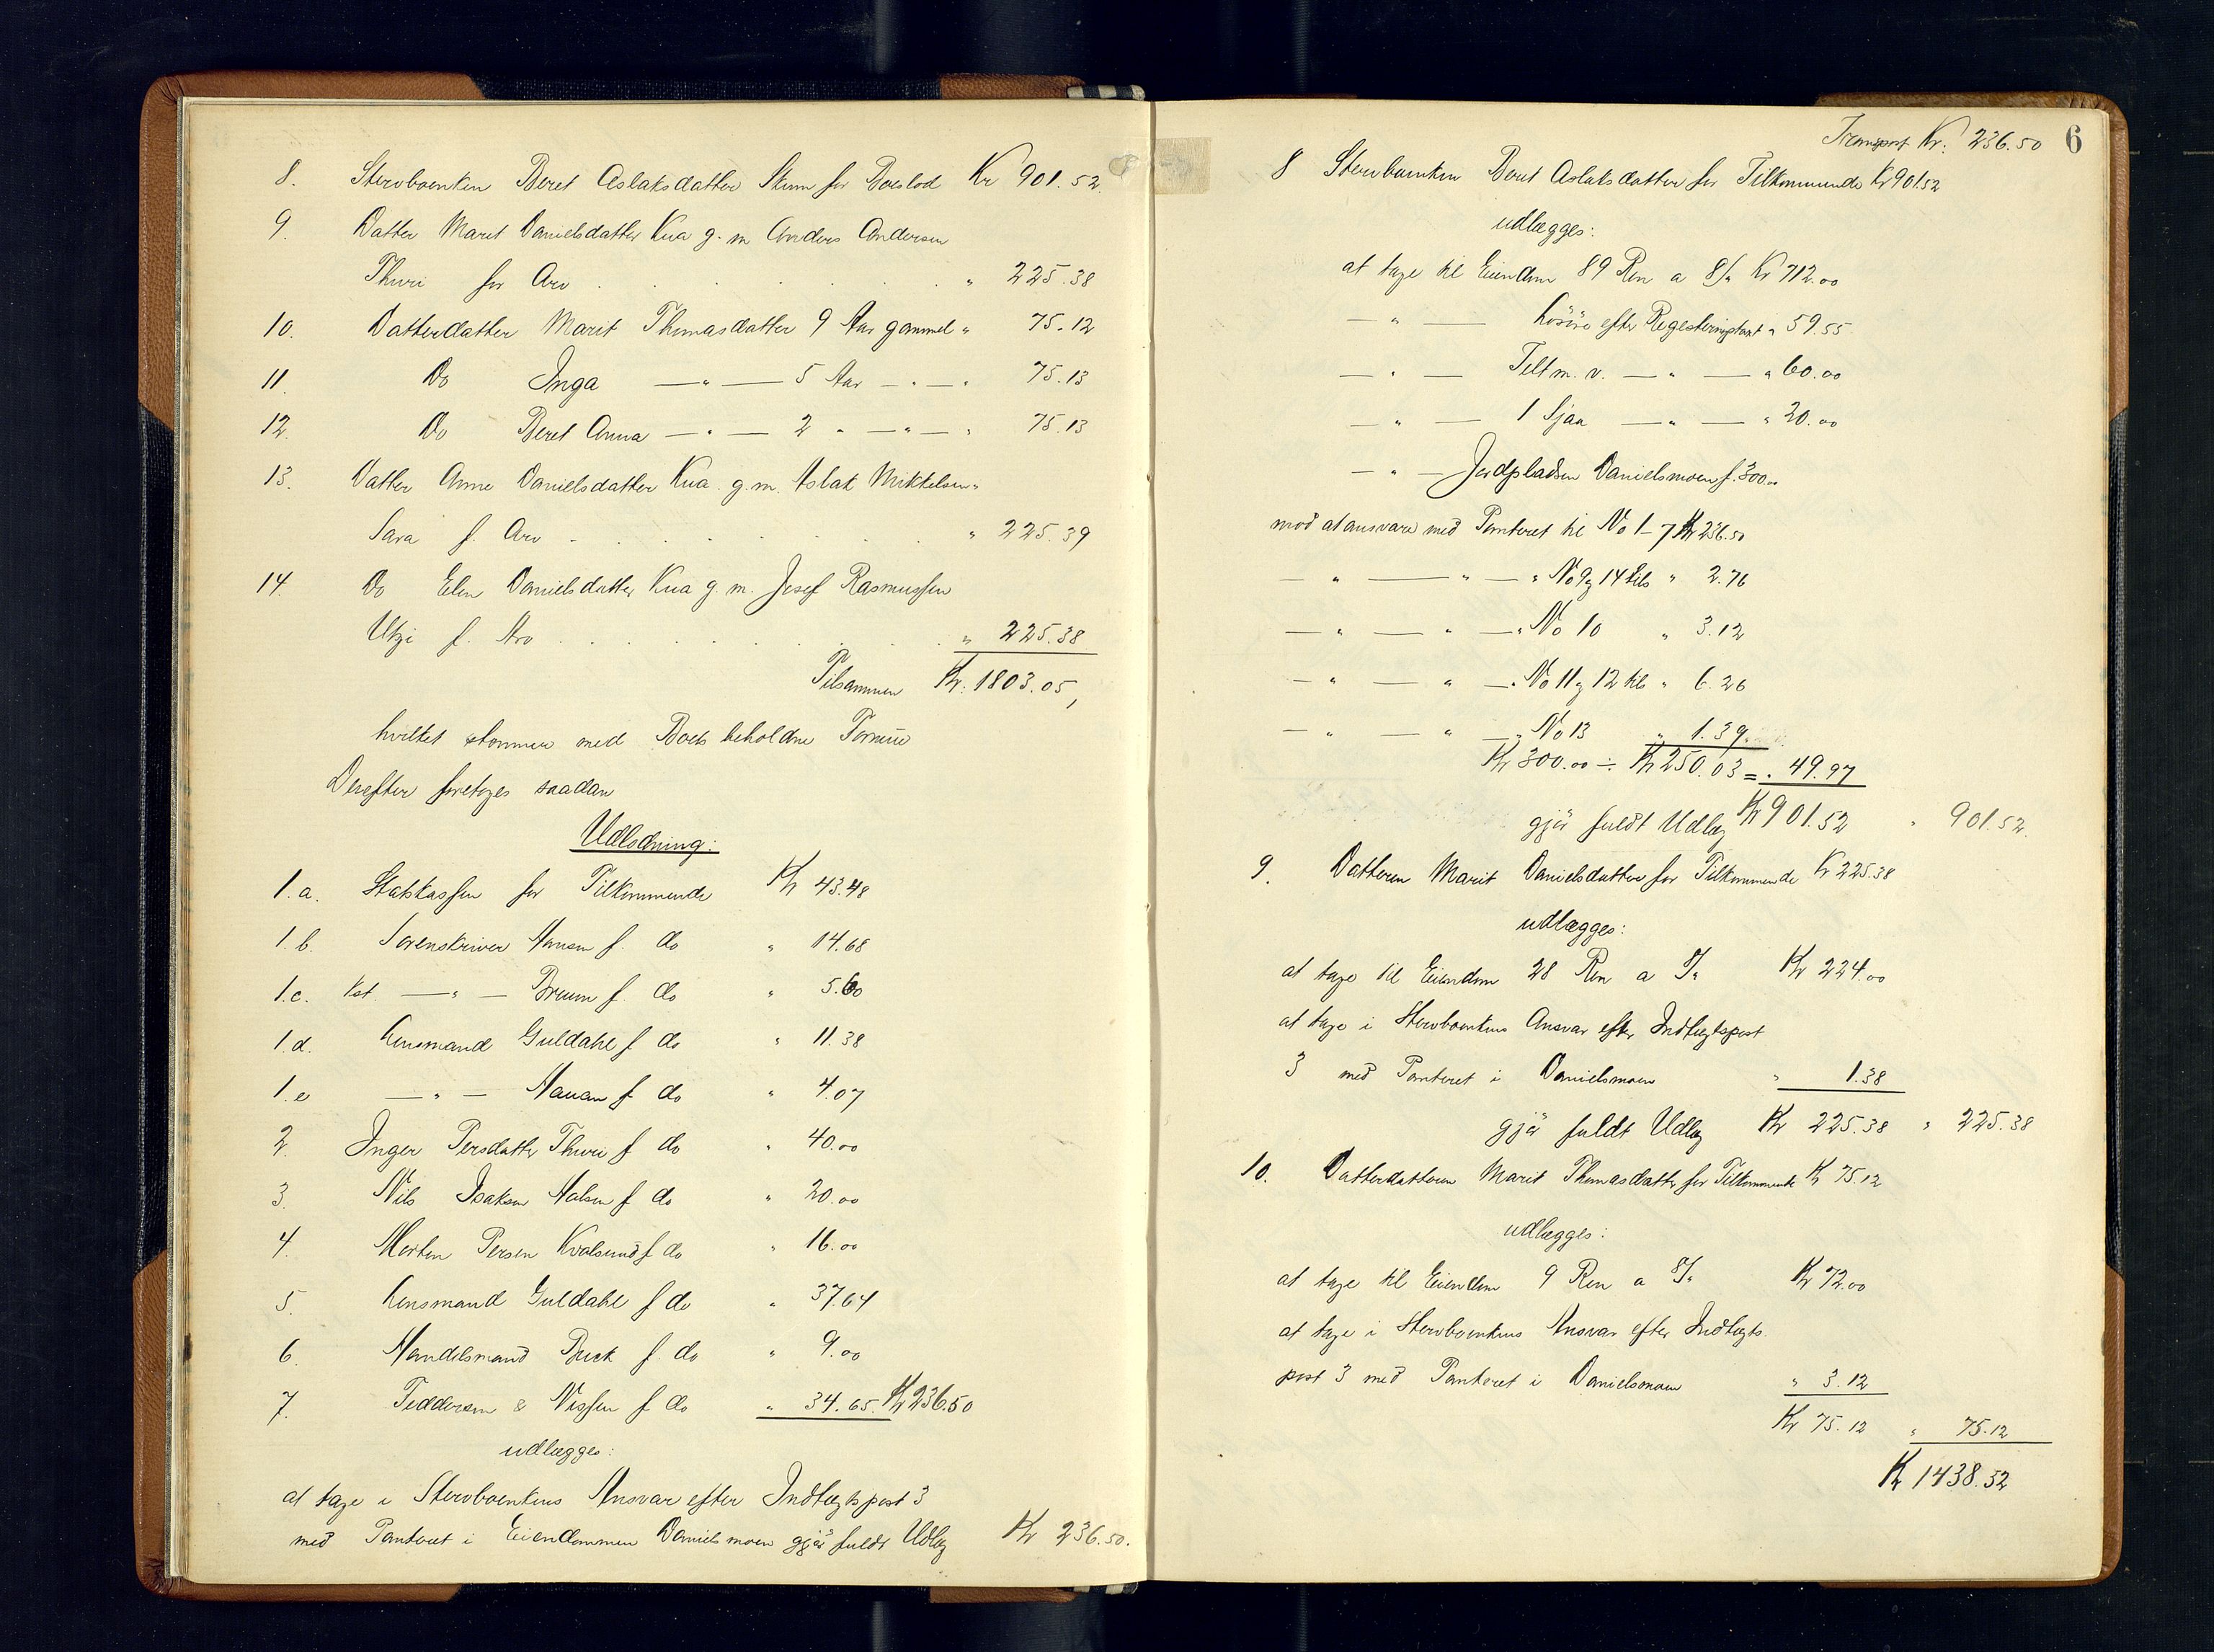 8. Stervboenken Beret Aslaksdatter Skum for Boeslod Kr 901.52.
9. Datter Marit Danielsdatter Kua g. m Anders Andersen
Thuri for Arv . . . . . . " 225.38
10. Datterdatter Marit Thomasdatter 9 Aar gammel " 75.12
11. Do Inga — " — 5 Aar — " — " 75.13
12. Do Beret Anna — " — 2 " — " — " 75.13
13. Datter Anne Danielsdatter Kua g. m. Aslak Mikkelsen
Sara f. Arv . . . . . . " 225.39
14. Do Elen Danielsdatter Kua g. m. Josef Rasmussen
Utzi f. Arv . . . . . . " 225.38
Tilsammen Kr. 1803.05,
hvilket stemmer med Boets beholdne Formue
Derefter foretoges saadan
Udlodning:
1.a. Statskassen for Tilkommende Kr 43.48
1.b. Sorenskriver Hansen f. do " 14.68
1.c. Kst. — " — Breum f. do " 5.60
1.d. Lensmand Guldahl f do " 11.38
1.e — " — Hauan f do " 4.07
2. Inger Persdatter Thuri f do " 40.00
3. Nils Isaksen Halsen f do " 20.00
4. Morten Persen Kvalsund f do " 16.00
5. Lensmand Guldahl f do " 37.64
6. Handelsmand Buck f. do " 9.00
7. Feddersen & Nissen f do " 34.65. Kr 236.50
udlægges:
at tage i Stervboenkens Ansvar efter Indtægtspost 3
med Panteret i Eiendommen Danielsmoen gjör fuldt Udlæg Kr 236.50.
Transport Kr. 236.50 6
8 Stervboenken Beret Aslaksdatter for Tilkommende Kr 901.52
udlægges:
at tage til Eiendom 89 Ren a 8/" Kr 712.00
— " — Lösöre efter Registreringstakst " 59.55
— " — Telt m. v. — " — " 60.00
— " — 1 Sjaa — " — " 20.00
— " — Jordpladsen Danielsmoen f. 300.00
mod at ansvare med Panteret til No 1–7 Kr 236.50
— " — " — " No 9 og 14 tils " 2.76
— " — " — " No 10 " 3.12
— " — " — " No 11 og 12 tils " 6.26
— " — " — " No 13 " 1.39.
Kr 300.00 ÷ Kr 250.03 = " 49.97
gjör fuldt Udlæg Kr 901.52 " 901.52.
9. Datteren Marit Danielsdatter for Tilkommende Kr 225.38
udlægges:
at tage til Eiendom 28 Ren a 8/" Kr 224.00
at tage i Stervboenkens Ansvar efter Indtægtspost
3 med Panteret i Danielsmoen " 1.38
gjör fuldt Udlæg Kr 225.38 " 225.38
10. Datterdatteren Marit Thomasdatter for Tilkommende Kr 75.12
udlægges:
at tage til Eiendom 9 Ren a 8/" Kr 72.00
at tage i Stervboenkens Ansvar efter Indtægts-
post 3 med Panteret i Danielsmoen " 3.12
Kr 75.12 " 75.12
Kr 1438.52